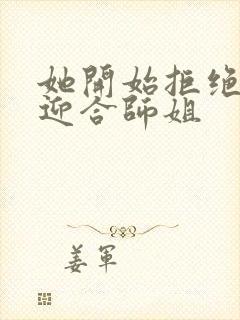 她開始拒绝
迎合師姐
姜軍